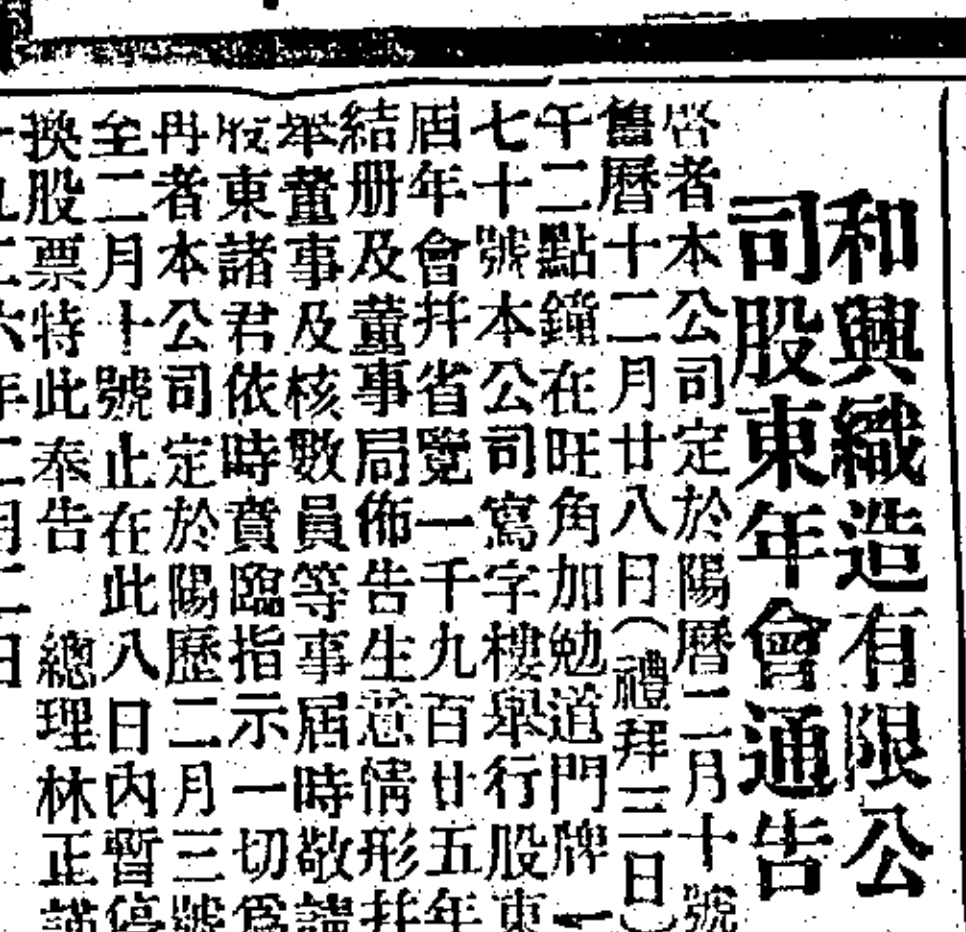 和興織造有限公
司股東年會通告
啓者本公司定於陽曆二月十號
舊曆十二月廿八日（禮拜三日）
午二點鐘在旺角加勉道門牌一
七十號本公司寫字樓舉行股東
屆年會幷省覽一千九百廿五年
結册及董事局佈告生意情形幷
举董事及核數員等事屆時敬請
股東諸君依時賁臨指示一切爲
再者本公司定於陽歷二月三號
至二月十號止在此八日內暫停
換股票特此奉告 總理林正
九二六年二月二日